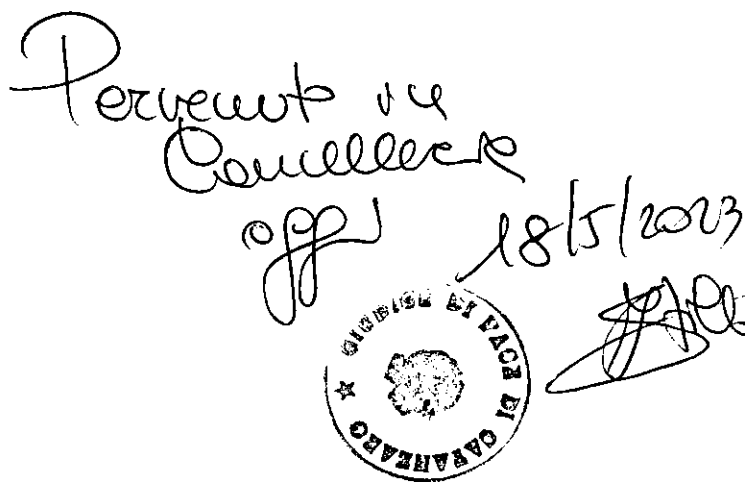 Pervenuto in
Cancelleria
oggi 18/5/2023
GIUDICE DI PACE DI CATANZARO